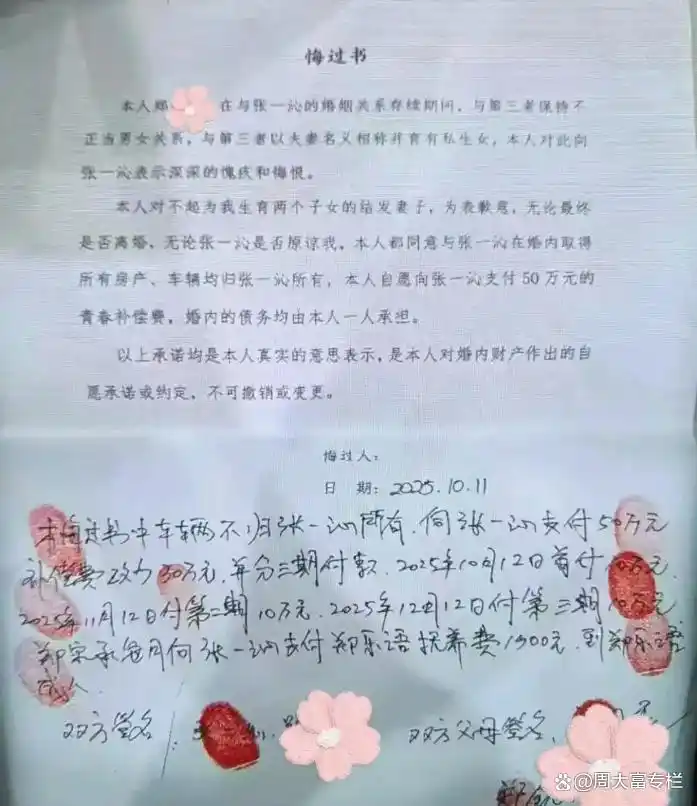 悔过书
本人郑 在与张一沁的婚姻关系存续期间，与第三者保持不
正当男女关系，与第三者以夫妻名义相称并育有私生女，本人对此向
张一沁表示深深的愧疚和悔恨。
本人对不起为我生育两个子女的结发妻子，为表歉意，无论最终
是否离婚、无论张一沁是否原谅我，本人都同意与张一沁在婚内取得
所有房产、车辆均归张一沁所有，本人自愿向张一沁支付50万元的
青春补偿费，婚内的债务均由本人一人承担。
以上承诺均是本人真实的意思表示，是本人对婚内财产作出的自
愿承诺或约定，不可撤销或变更。
悔过人：
日 期：2025.10.11
本悔过书中车辆不归张一沁所有，向张一沁支付50万元
补偿费改为30万元，并分三期付款，2025年10月12日首付10万元，
2025年11月12日付第二期10万元，2025年12月12日付第三期10万元
郑宗承每月向张一沁支付郑乐语抚养费1900元，到郑乐语
成人
双方签名：
双方父母签名、
郑
@周大富专栏